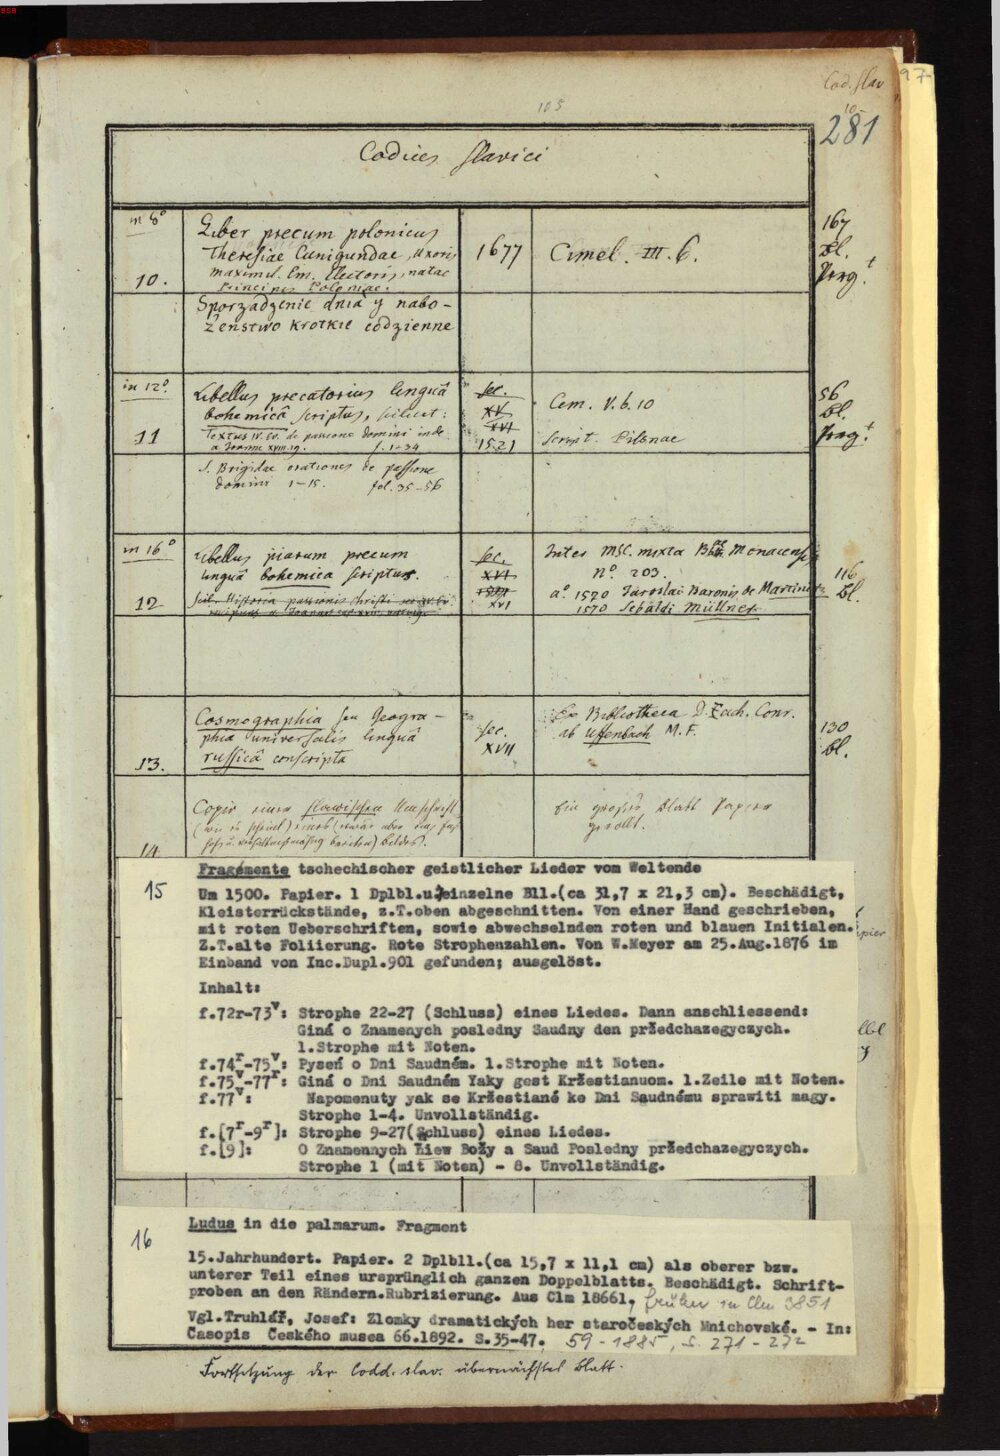 858
Cod. slav
97
105
281
Codices slavici
in 8°
10.
Liber precum polonicus
Theresiae Cunigundae, uxoris
maximil. Em. Electoris, natae
Principis Poloniae.
1677
Cimel. III. 6.
167
Bl.
Perg.t
Sporządzenie dnia y nabo-
żenstwo krotkie codzienne
in 12°
11
Libellus precatorius linguâ
bohemicâ scriptus, scilicet:
Textus IV. Ev. de passione domini inde
a Joanne XVIII.19. f. 1-34
sec.
XV
XVI
1521
Cem. V. b. 10
Script. Pilsnae
56
Bl.
Perg.t
S. Brigidae orationes de passione
domini 1-15. fol. 35-56
in 16°
12
Libellus piarum precum
linguâ bohemica scriptus.
Scil. Historia passionis Christi
sec.
XVI
XVI
Inter MSC. mixta Monacensis
n° 203.
a° 1570 Jaroslai Baronis de Martinitz
1570 Sebaldi Müllner
116
Bl.
13.
Cosmographia seu Geogra-
phia universalis linguâ
russicâ conscripta
sec.
XVII
Ex Bibliotheca D. Zach. Conr.
ab Uffenbach M. F.
130
Bl.
14
Copie einer slawischen Umschrift
Ein großes Blatt Papier
gerollt.
15
Fragmente tschechischer geistlicher Lieder vom Weltende
Um 1500. Papier. 1 Dplbl.u. einzelne Bll.(ca 31,7 x 21,3 cm). Beschädigt,
Kleisterrückstände, z.T.oben abgeschnitten. Von einer Hand geschrieben,
mit roten Ueberschriften, sowie abwechselnden roten und blauen Initialen.
Z.T.alte Foliierung. Rote Strophenzahlen. Von W.Meyer am 25.Aug.1876 im
Einband von Inc.Dupl.901 gefunden; ausgelöst.
Inhalt:
f.72r-73v: Strophe 22-27 (Schluss) eines Liedes. Dann anschliessend:
Giná o Znamenych posledny Saudny den pržedchazegyczych.
1.Strophe mit Noten.
f.74r-75v: Pyseń o Dni Saudném. 1.Strophe mit Noten.
f.75v-77r: Giná o Dni Saudném Yaky gest Kržestianuom. 1.Zeile mit Noten.
f.77v: Napomenuty yak se Kržestiané ke Dni Saudnému sprawiti magy.
Strophe 1-4. Unvollständig.
f.[7r-9r]: Strophe 9-27(Schluss) eines Liedes.
f.[9]: O Znamennych Hiew Božy a Saud Posledny pržedchazegyczych.
Strophe 1 (mit Noten) - 8. Unvollständig.
16
Ludus in die palmarum. Fragment
15.Jahrhundert. Papier. 2 Dplbll.(ca 15,7 x 11,1 cm) als oberer bzw.
unterer Teil eines ursprünglich ganzen Doppelblatts. Beschädigt. Schrift-
proben an den Rändern.Rubrizierung. Aus Clm 18661, früher in Clm 3851
Vgl.Truhlář, Josef: Zlomky dramatických her staročeských Mnichovské. - In:
Casopis Českého musea 66.1892. S.35-47. 59-1885, S. 271-272
Fortsetzung der Codd. slav. übernächstes Blatt.